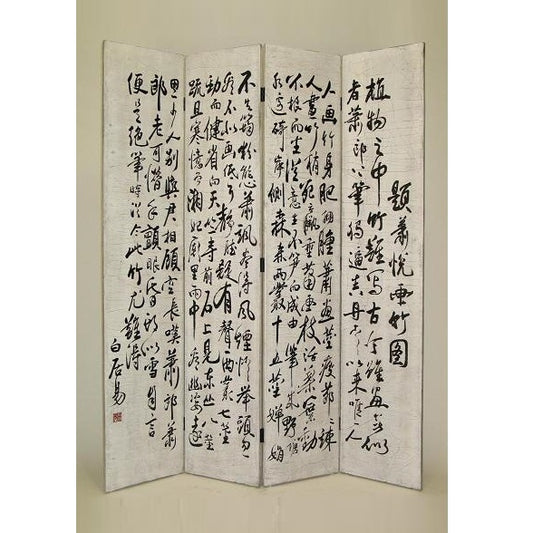 題蕭悅画竹圖
植物之中竹難寫古今雖畫無似
者蕭郎下筆獨逼真丹青以来唯一人
人画竹身肥臃腫蕭画莖瘦節節竦
人畫竹梢死羸垂蕭畫枝活葉葉動
不根而生從意生不笋而成由筆成野塘
水邊碕岸側森森兩叢十五莖嬋娟
不失筠粉態蕭颯尽得風煙情舉頭忽
看不似画低耳静聴疑有聲西叢七莖
勁而健省向天竺寺前石上見东丛八莖
疏且寒憶曾湘妃廟里雨中看幽姿遠
思少人别與君相顧空長嘆蕭郎蕭
郎老可惜手顫眼昏頭似雪色自言
便是绝筆時從今此竹尤難得
白居易